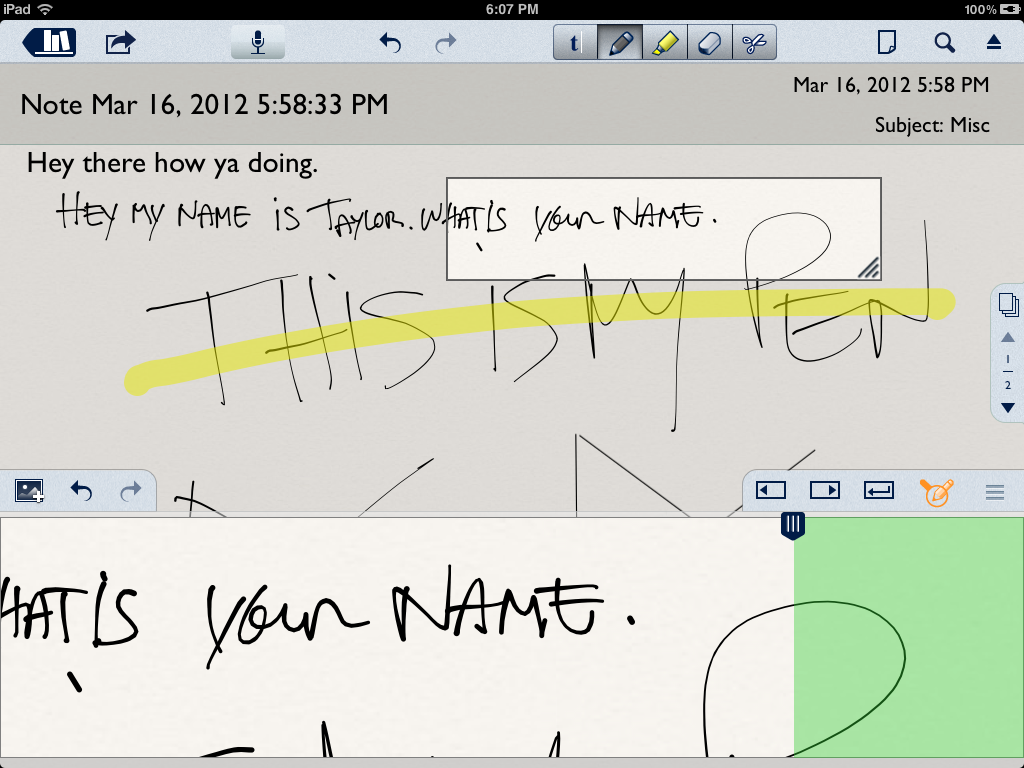 iPad 6:07 PM 100%
t
Note Mar 16, 2012 5:58:33 PM
Mar 16, 2012 5:58 PM
Subject: Misc
Hey there how ya doing.
HEY MY NAME iS TAYLOR. WHAT iS YOUR NAME.
THiS iS MY PEN
1
2
HAT iS YOUR NAME.